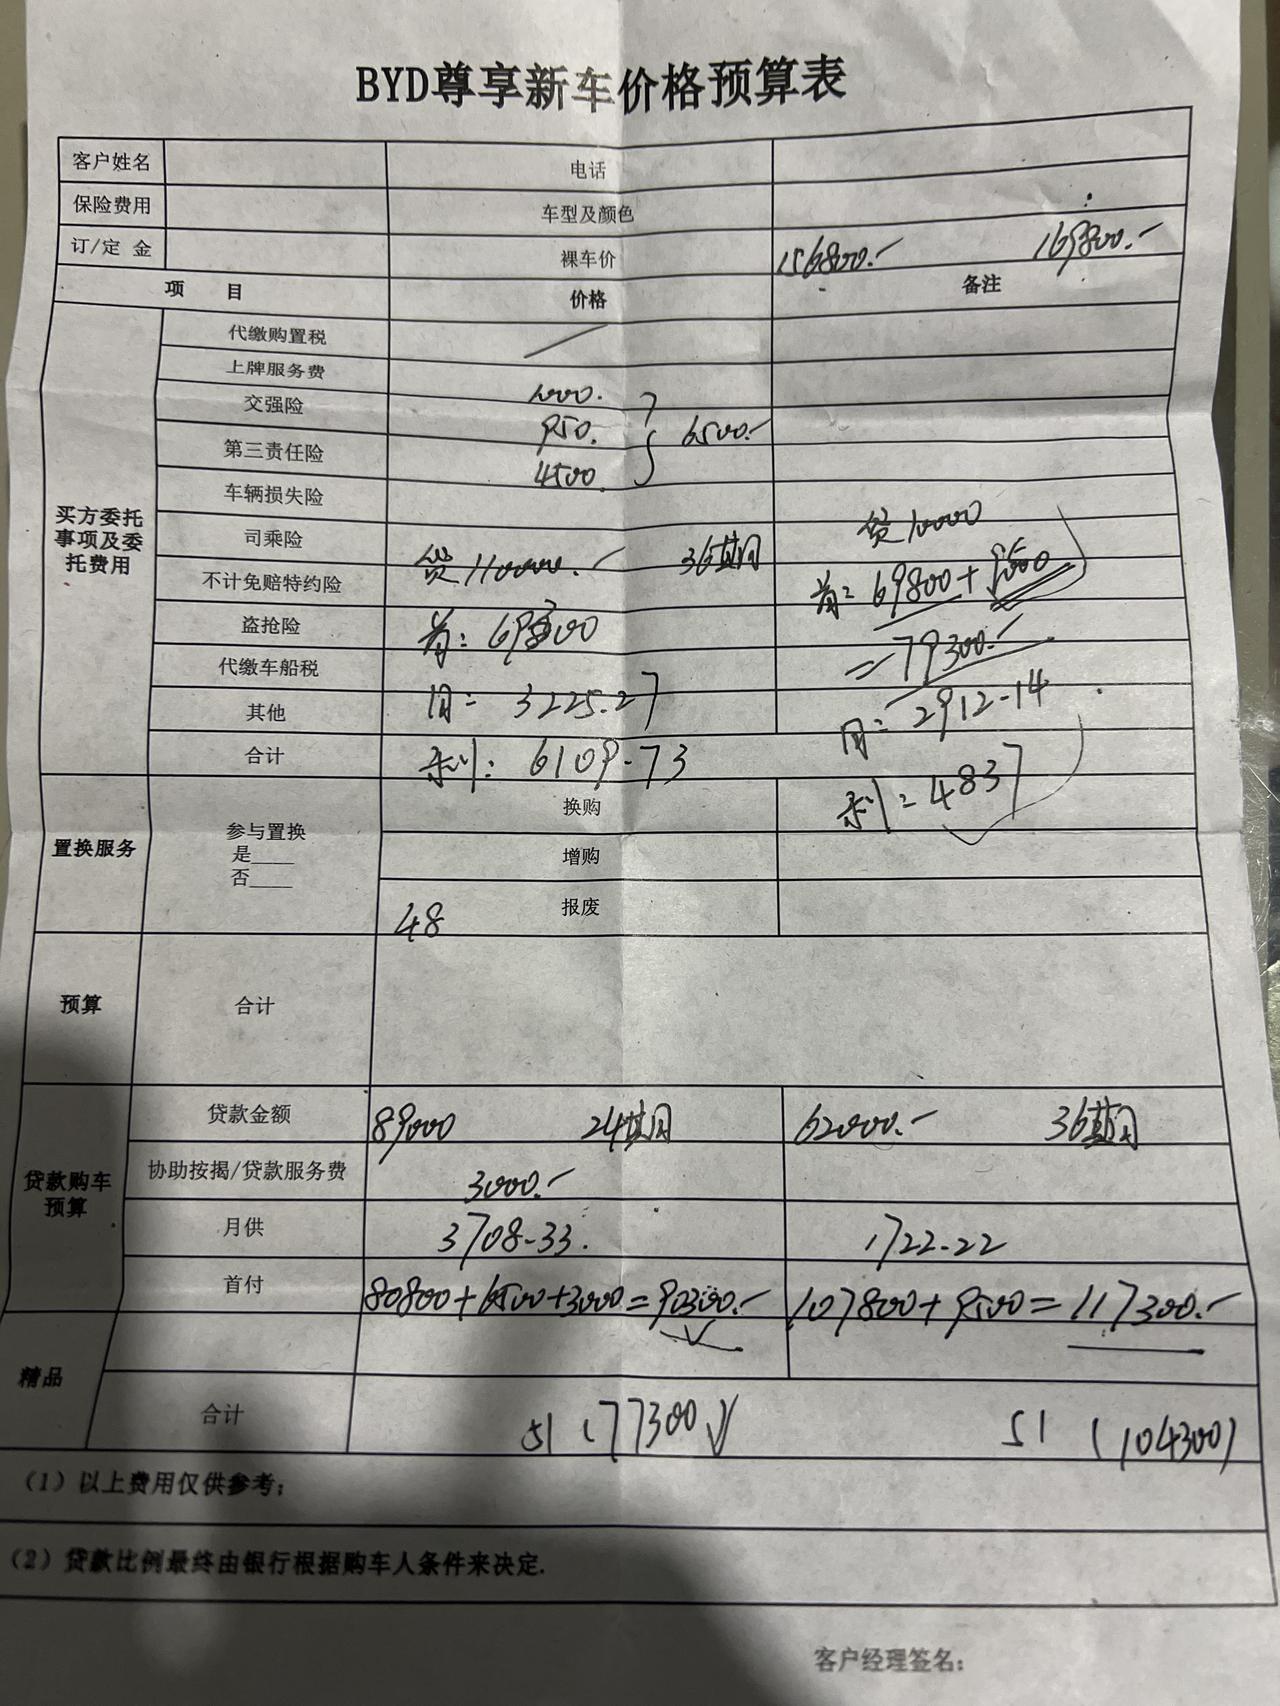 BYD尊享新车价格预算表
客户姓名 电话
保险费用 车型及颜色
订/定 金 裸车价 156800.- 169800.-
项 目 价格 备注
代缴购置税
上牌服务费
交强险 1000.
第三责任险 950. 6500.-
车辆损失险 4500.
买方委托事项及委托费用
司乘险 贷110000.- 36期 贷100000
不计免赔特约险 首: 69800+9500
盗抢险 首: 69300 =79300.-
代缴车船税 月: 3225.27 月: 2912-14
其他
合计 利: 6109-73 利: 4837
置换服务
参与置换
是____
否____
换购
增购
报废
48
预算 合计
贷款购车预算
贷款金额 89000 24期 62000.- 36期
协助按揭/贷款服务费 3000.-
月供 3708-33. 1722-22
首付 80800+6500+3000=90300.- 107800+9500=117300.-
精品
合计 51 (77300) 51 (104300)
(1)以上费用仅供参考;
(2)贷款比例最终由银行根据购车人条件来决定.
客户经理签名: